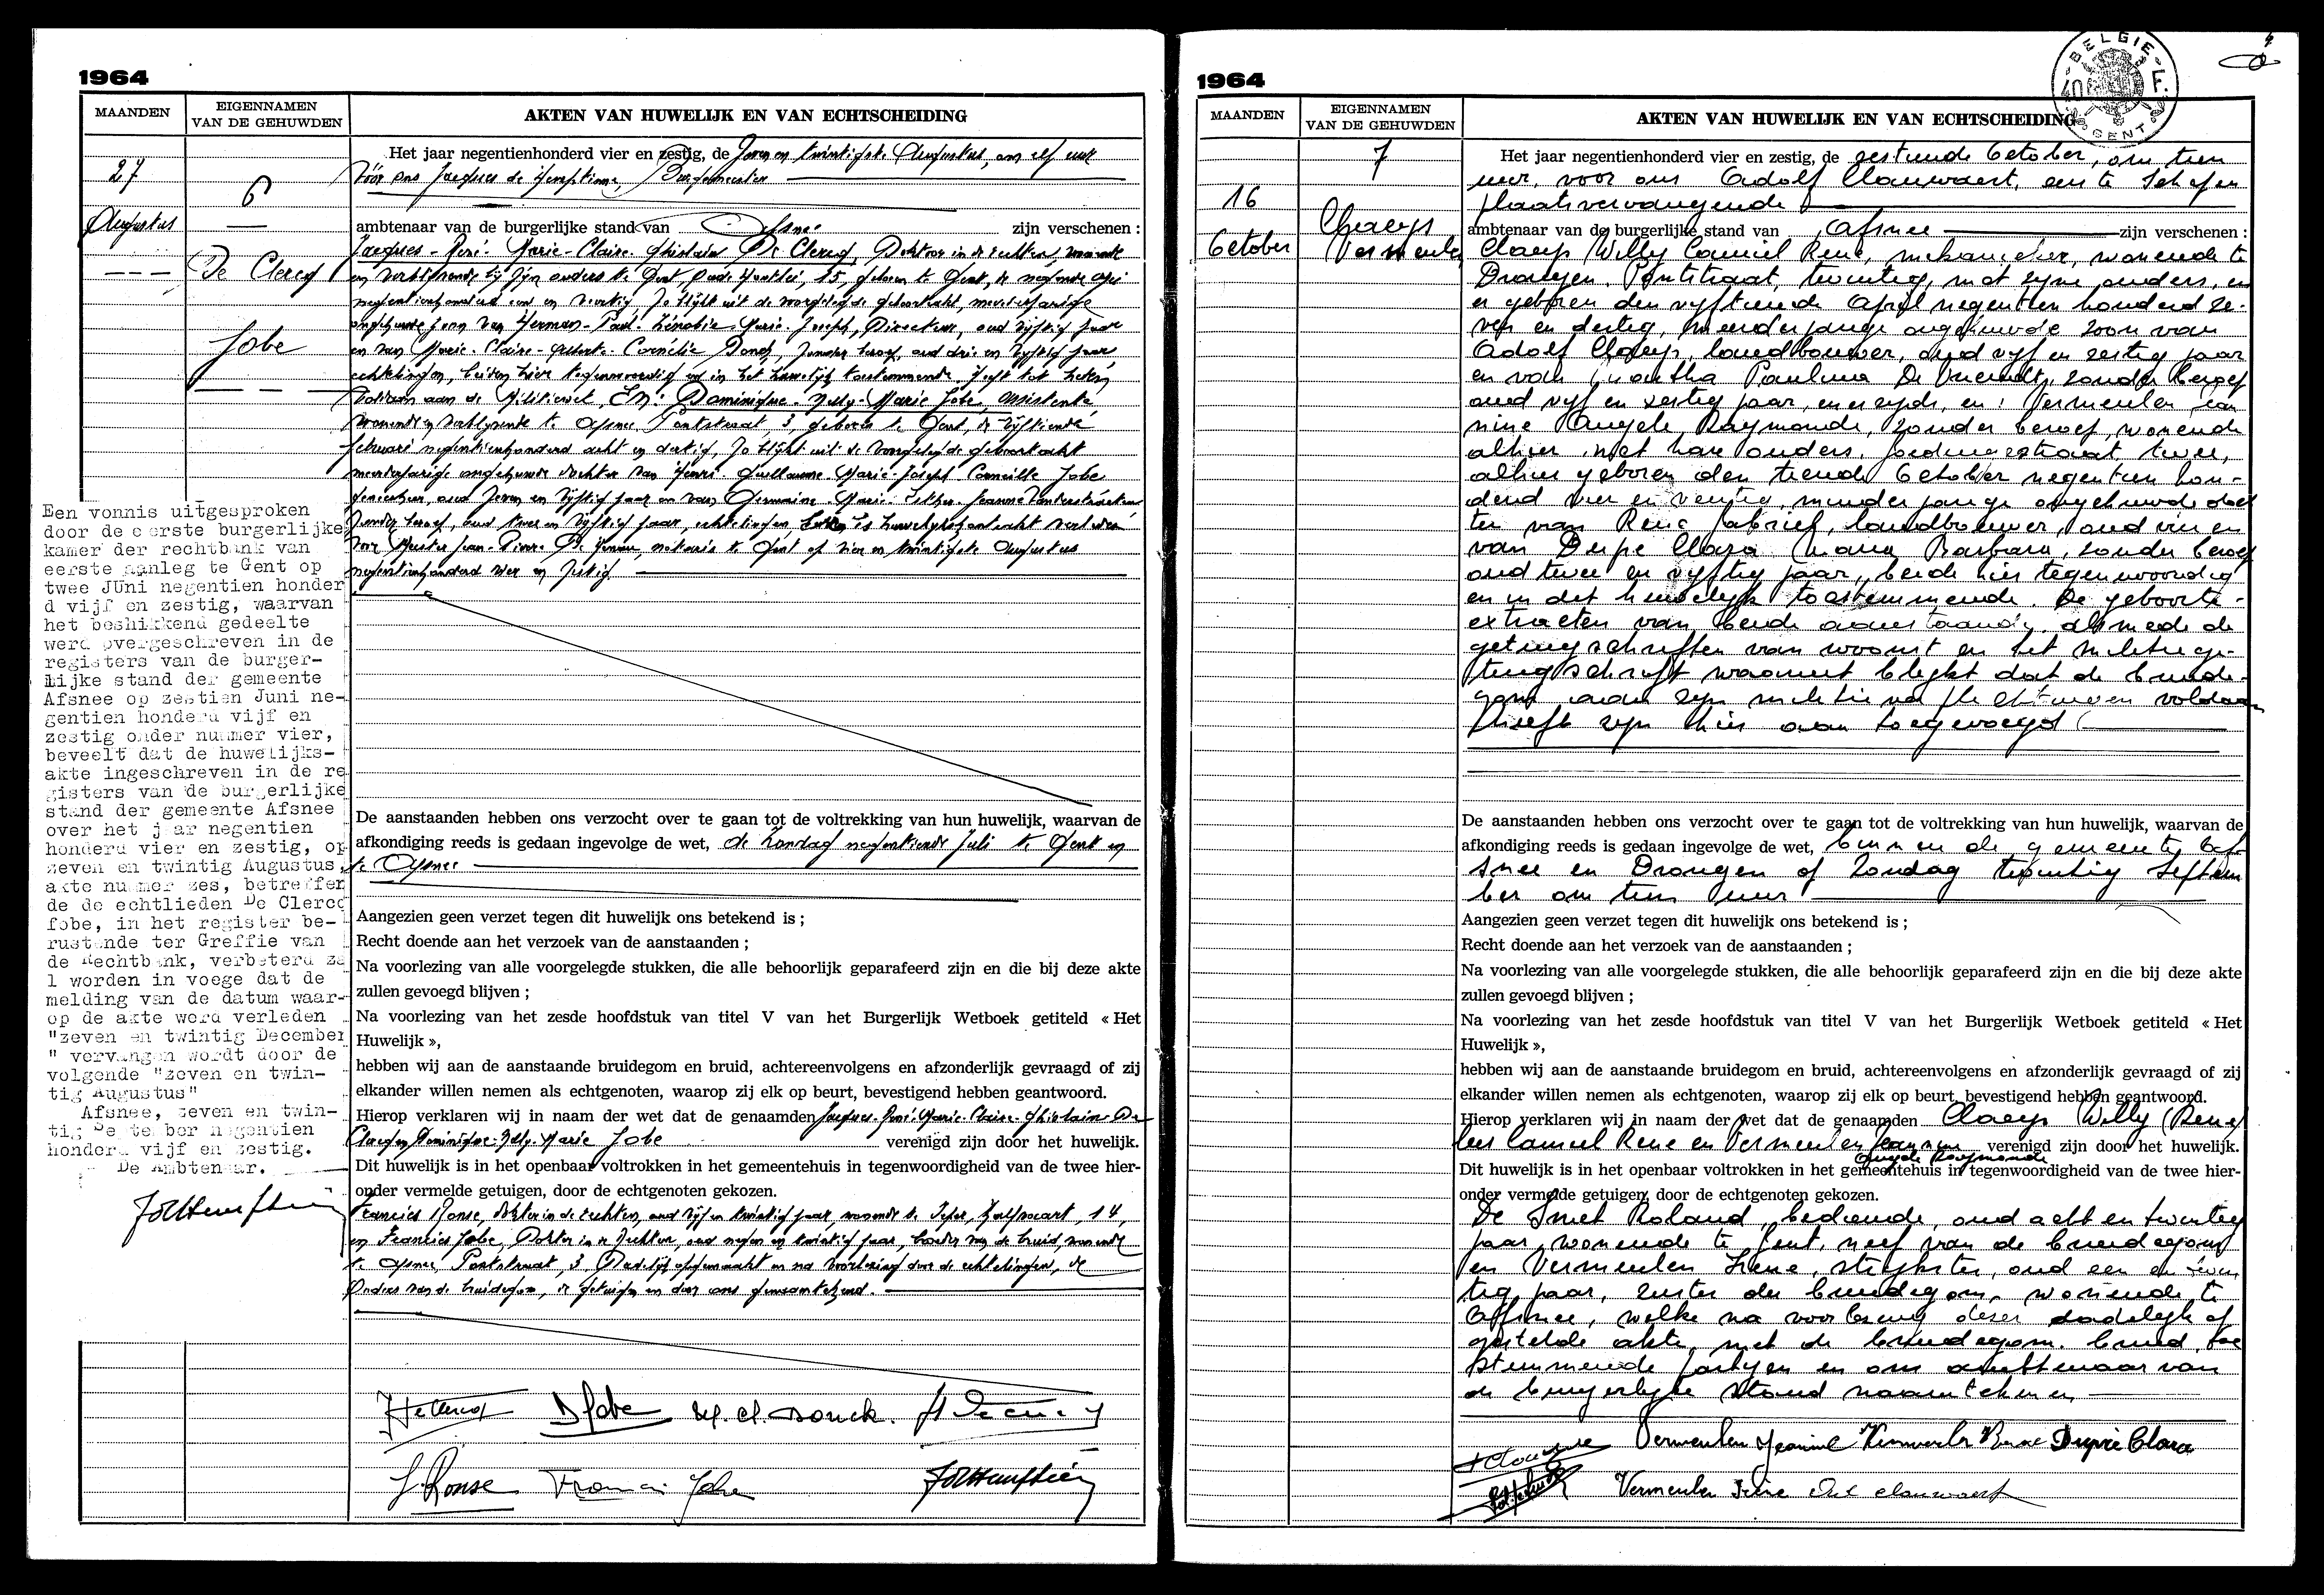 1964
MAANDEN
EIGENNAMEN
VAN DE GEHUWDEN
AKTEN VAN HUWELIJK EN VAN ECHTSCHEIDING
27
Augustus
6
De Clercq
Jobe
Het jaar negentienhonderd vier en zestig, de zeven en twintigste Augustus, om elf uur
Vóór ons Jacques de Hemptinne, Burgemeester
ambtenaar van de burgerlijke stand van Afsnee zijn verschenen :
Jacques - René - Marie - Claire - Ghislain De Clercq, Doktoor in de rechten, wonende
en verblijvende bij zijn ouders te Gent, 15, geboren te Gent, de negende
negentienhonderd een en veertig, zo blijkt uit de voorgelegde geboorteakt, meerderjarige
ongehuwde zoon van Herman - Paul - Zénobie - Marie - Joseph, Directeur, oud vijftig jaar
en van Marie - Claire - Cornélie Donck, zonder beroep, oud drie en vijftig jaar,
echtelingen, beiden hier tegenwoordig en in het huwelijk toestemmende, heeft tot heden
voldaan aan de Militiewet, En: Dominique - Nelly - Marie Jobe, assistente,
wonende en verblijvende te Afsnee, Pontstraat 3, geboren te Gent, de vijftiende
februari negentienhonderd acht en dertig, zo blijkt uit de voorgelegde geboorteakt
meerderjarige ongehuwde dochter van Henri - Guillaume - Marie - Joseph Corneille Jobe
oud zeven en vijftig jaar en van Germaine - Marie - Esther - Jeanne
zonder beroep, oud twee en vijftig jaar, echtelingen huwelijkskontrakt verleden
voor Meester Jean - Pierre notaris te Gent op vier en twintigste Augustus
negentienhonderd vier en zestig.
De aanstaanden hebben ons verzocht over te gaan tot de voltrekking van hun huwelijk, waarvan de
afkondiging reeds is gedaan ingevolge de wet, de Zondag negentiende Juli te Gent en
te Afsnee
Aangezien geen verzet tegen dit huwelijk ons betekend is ;
Recht doende aan het verzoek van de aanstaanden ;
Na voorlezing van alle voorgelegde stukken, die alle behoorlijk geparafeerd zijn en die bij deze akte
zullen gevoegd blijven ;
Na voorlezing van het zesde hoofdstuk van titel V van het Burgerlijk Wetboek getiteld « Het
Huwelijk »,
hebben wij aan de aanstaande bruidegom en bruid, achtereenvolgens en afzonderlijk gevraagd of zij
elkander willen nemen als echtgenoten, waarop zij elk op beurt, bevestigend hebben geantwoord.
Hierop verklaren wij in naam der wet dat de genaamden Jacques - René - Marie - Claire - Ghislain De
Clercq en Dominique - Nelly - Marie Jobe verenigd zijn door het huwelijk.
Dit huwelijk is in het openbaar voltrokken in het gemeentehuis in tegenwoordigheid van de twee hier-
onder vermelde getuigen, door de echtgenoten gekozen.
Francies Ronse, doktor in de rechten, oud vijf en twintig jaar, wonende te Ieper, 14,
en Francies Jobe, Doktor in de Rechten, oud negen en twintig jaar, broeder van de bruid, wonende
te Afsnee, Pontstraat, 3. Dadelijk opgemaakt en na voorlezing door de echtelingen, de
Ouders van de bruidegom, de getuigen en door ons ondertekend.
Een vonnis uitgesproken
door de eerste burgerlijke
kamer der rechtbank van
eerste aanleg te Gent op
twee JUni negentien honder
d vijf en zestig, waarvan
het beshikkend gedeelte
werd overgeschreven in de
registers van de burger-
lijke stand der gemeente
Afsnee op zestien Juni ne-
gentien honderd vijf en
zestig onder nummer vier,
beveelt dat de huwelijks-
akte ingeschreven in de re
gisters van de burgerlijke
stand der gemeente Afsnee
over het jaar negentien
honderd vier en zestig, op
zeven en twintig Augustus,
akte nummer zes, betreffen
de de echtlieden De Clercq
fobe, in het register be-
rustende ter Greffie van
de Rechtbank, verbeterd za
l worden in voege dat de
melding van de datum waar-
op de akte werd verleden
"zeven en twintig December
" vervangen wordt door de
volgende "zeven en twin-
tig Augustus"
Afsnee, zeven en twin-
tig September negentien
honderd vijf en zestig.
De Ambtenaar.
DJobe M. Cl. Donck.
F. Ronse Francis Jobe
1964
BELGIE
GENT
MAANDEN
EIGENNAMEN
VAN DE GEHUWDEN
AKTEN VAN HUWELIJK EN VAN ECHTSCHEIDING
16
October
7
Claeys
Vermeulen
Het jaar negentienhonderd vier en zestig, de zestiende October, om tien
uur, voor ons Adolf Clauwaert, eerste Schepen
plaatsvervangende
ambtenaar van de burgerlijke stand van Afsnee zijn verschenen :
Claeys Willy Camiel René, mekanieker, wonende te
Drongen, Pontstraat, twintig, met zijne ouders, en
er geboren den vyftiende April negentien honderd ze-
ven en dertig, meerderjarige ongehuwde zoon van
Adolf Claeys, landbouwer, oud vyf en zestig jaar
en van Martha Paulina De Vriendt, zonder beroep
oud vyf en zestig jaar, en: Vermeulen Jean
nine Angèle Raymonde, zonder beroep, wonende
alhier met hare ouders, twee,
alhier geboren den tiende October negentien hon-
derd vier en veertig, minderjarige ongehuwde doch
ter van René Gabriel, landbouwer, oud en
van Dupe Clara Maria Barbara, zonder beroep
oud twee en vyftig jaar, beide hier tegenwoordig
en in dit huwelyk toestemmende. De geboorte-
extracten van beide aanstaanden, alsmede de
getuigschriften van woonst en het militiege-
tuigschrift waaruit blykt dat de bruide-
gom aan zyn militieverplichtingen voldaan
heeft zyn hier aan toegevoegd
De aanstaanden hebben ons verzocht over te gaan tot de voltrekking van hun huwelijk, waarvan de
afkondiging reeds is gedaan ingevolge de wet, binnen de gemeente Af-
snee en Drongen op Zondag twintig Septem
ber om tien uur
Aangezien geen verzet tegen dit huwelijk ons betekend is ;
Recht doende aan het verzoek van de aanstaanden ;
Na voorlezing van alle voorgelegde stukken, die alle behoorlijk geparafeerd zijn en die bij deze akte
zullen gevoegd blijven ;
Na voorlezing van het zesde hoofdstuk van titel V van het Burgerlijk Wetboek getiteld « Het
Huwelijk »,
hebben wij aan de aanstaande bruidegom en bruid, achtereenvolgens en afzonderlijk gevraagd of zij
elkander willen nemen als echtgenoten, waarop zij elk op beurt, bevestigend hebben geantwoord.
Hierop verklaren wij in naam der wet dat de genaamden Claeys Willy
Camiel Rene en Vermeulen Jeannine verenigd zijn door het huwelijk.
Angele Raymonde
Dit huwelijk is in het openbaar voltrokken in het gemeentehuis in tegenwoordigheid van de twee hier-
onder vermelde getuigen, door de echtgenoten gekozen.
De Smet Roland, bediende, oud acht en twintig
jaar, wonende te Gent, neef van de bruidegom
en Vermeulen Irene, strykster, oud een en twin
tig jaar, zuster der bruidegom, wonende te
Affsnee, welke na voorlezing dezer dadelyk op
gestelde akte, met de bruidegom, bruid, toe
stemmende partyen en ons ambtenaar van
de burgerlyke stand naamtekenen
Vermeulen Jeannine Vermeulen Rene Dupré Clara
Vermeulen Irène Clauwaert